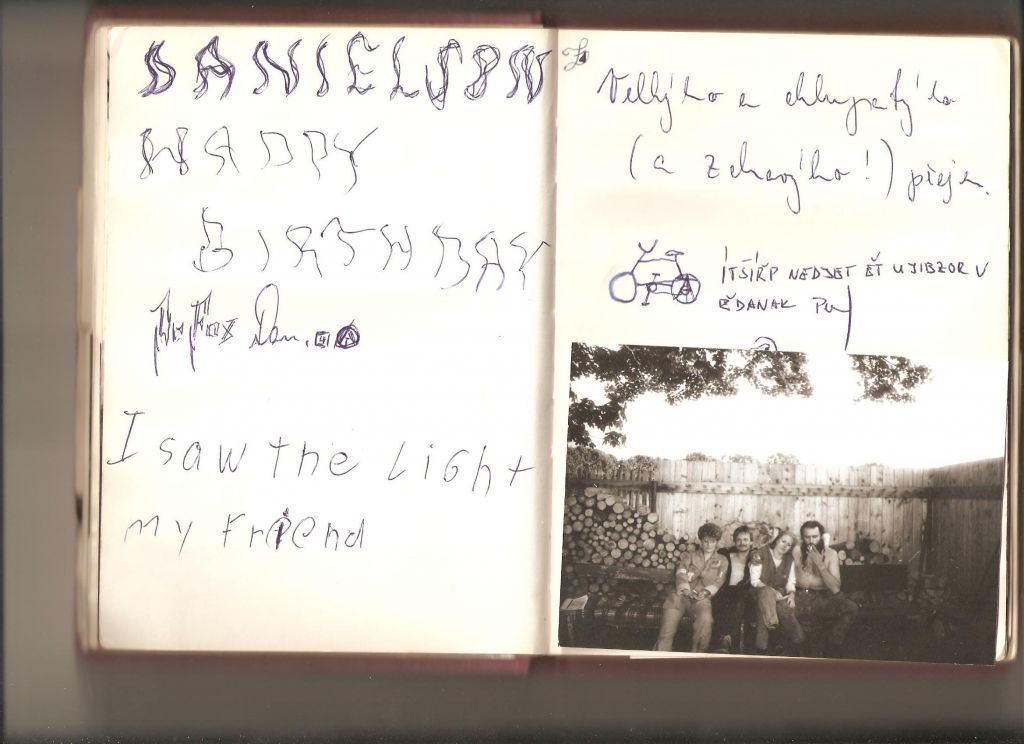 DANIELSON
HAPPY
BIRTHDAY
Dan.
I saw the Light
my Friend
Velkýho a chlupatýho
(a zdravýho!) přeje
ÍTŠÍŘP NEDJET ĚT UJIBZOR V
ĚDANAK